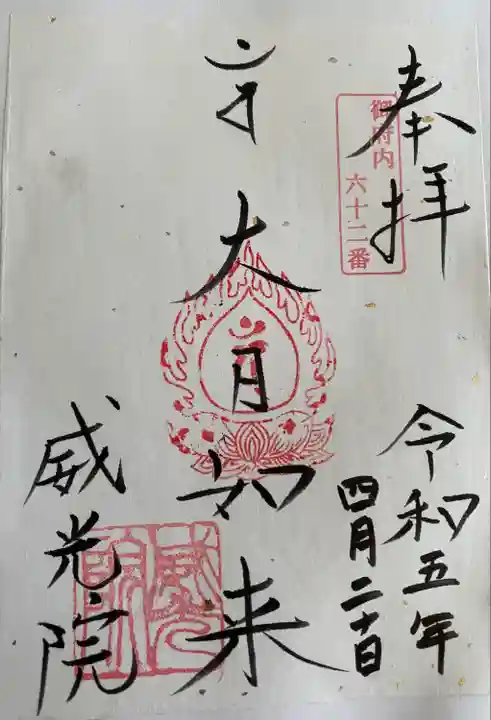 奉拝
御府内 六十二番
令和五年
四月二十日
大日如来
威光院